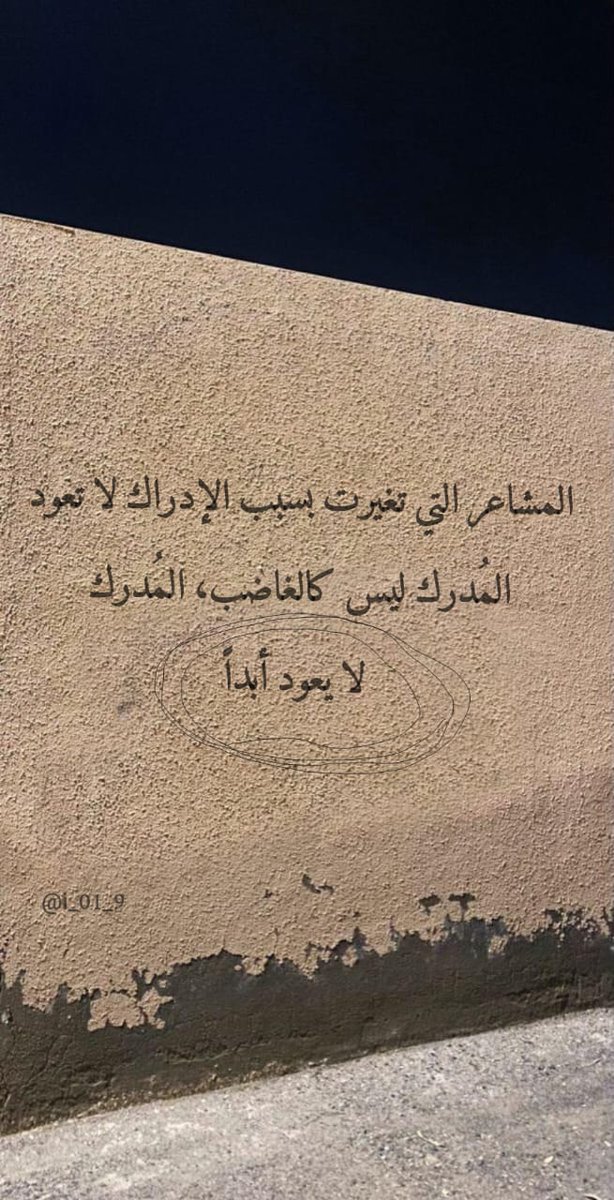 المشاعر التي تغيرت بسبب الإدراك لا تعود
المُدرك ليس كالغاضب، المُدرك
لا يعود أبداً
@i_01_9